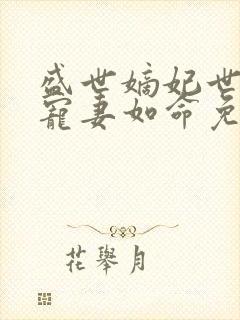 盛世嫡妃世
宠妻如命免
花舉月